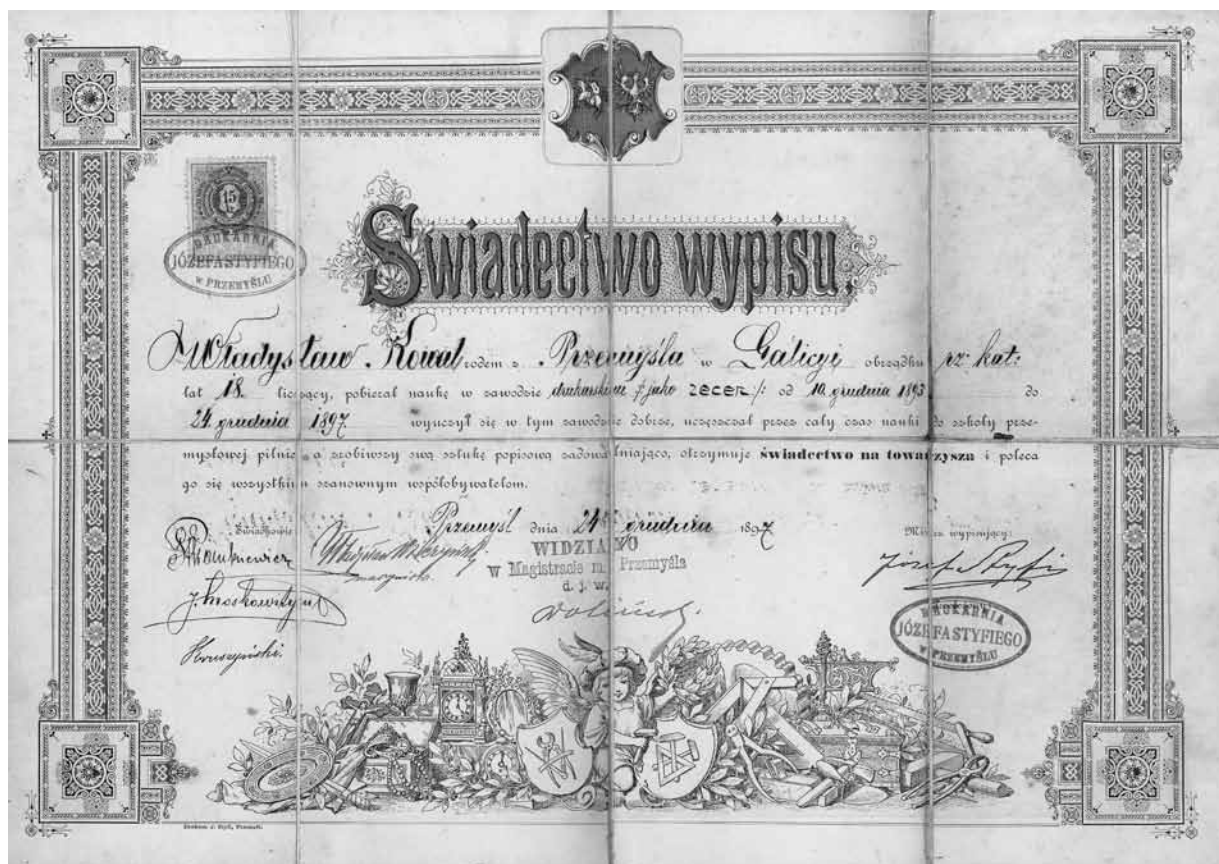 15
DRUKARNIA
JÓZEFA STYFIEGO
W PRZEMYŚLU
Świadectwo wypisu.
Władysław Kowal rodem z Przemyśla w Galicyi obrządku rz. kat:
lat 18. liczący, pobierał naukę w zawodzie drukarskim /: jako zecer /: od 10. grudnia 1893 do
24. grudnia 1897 wyuczył się w tym zawodzie dobrze, uczęszczał przez cały czas nauki do szkoły prze-
mysłowej pilnie a zrobiwszy swą sztukę popisową zadowalniająco, otrzymuje świadectwo na towarzysza i poleca
go się wszystkim szanownym współobywatelom.
Przemyśl dnia 24 grudnia 1897
Świadkowie
wypisujący:
WIDZIANO
W Magistracie m. Przemyśla
d. j. w.
Józef Styfi
Kruszyński.
DRUKARNIA
JÓZEFA STYFIEGO
W PRZEMYŚLU